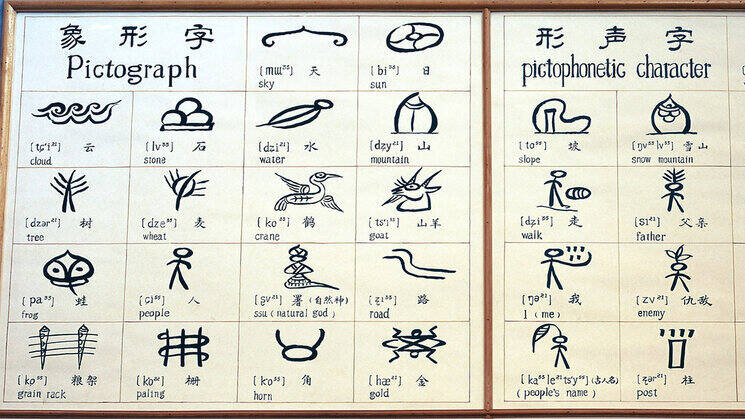 象形字
Pictograph
[mɯ³³] 天
sky
[bi³³] 日
sun
[tɕ'i²¹] 云
cloud
[lv³³] 石
stone
[dʑi²¹] 水
water
[dʑy²¹] 山
mountain
[dzər²¹] 树
tree
[dze³³] 麦
wheat
[ko³³] 鹤
crane
[ts'ɿ²¹] 山羊
goat
[pa³³] 蛙
frog
[ɕi³³] 人
people
[ʂv²¹] 署(自然神)
ssu (natural god)
[ʐɿ³³] 路
road
粮架
grain rack
栅
paling
[k'o³³] 角
horn
[hæ²¹] 金
gold
形声字
pictophonetic character
[to⁵⁵] 坡
slope
[ŋv³³lv³³] 雪山
snow mountain
[dʑi³³] 走
walk
[sɿ²¹] 父亲
father
[ŋə²¹] 我
I (me)
[zv²¹] 仇敌
enemy
[ka³³le²¹ts'y³³] (古人名)
(people's name)
[ʐər²¹] 柱
post